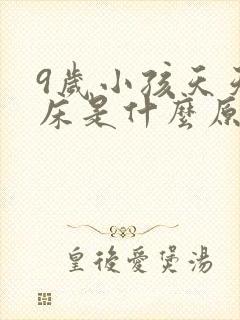 9歲小孩天天
床是什麼原
皇後愛煲湯